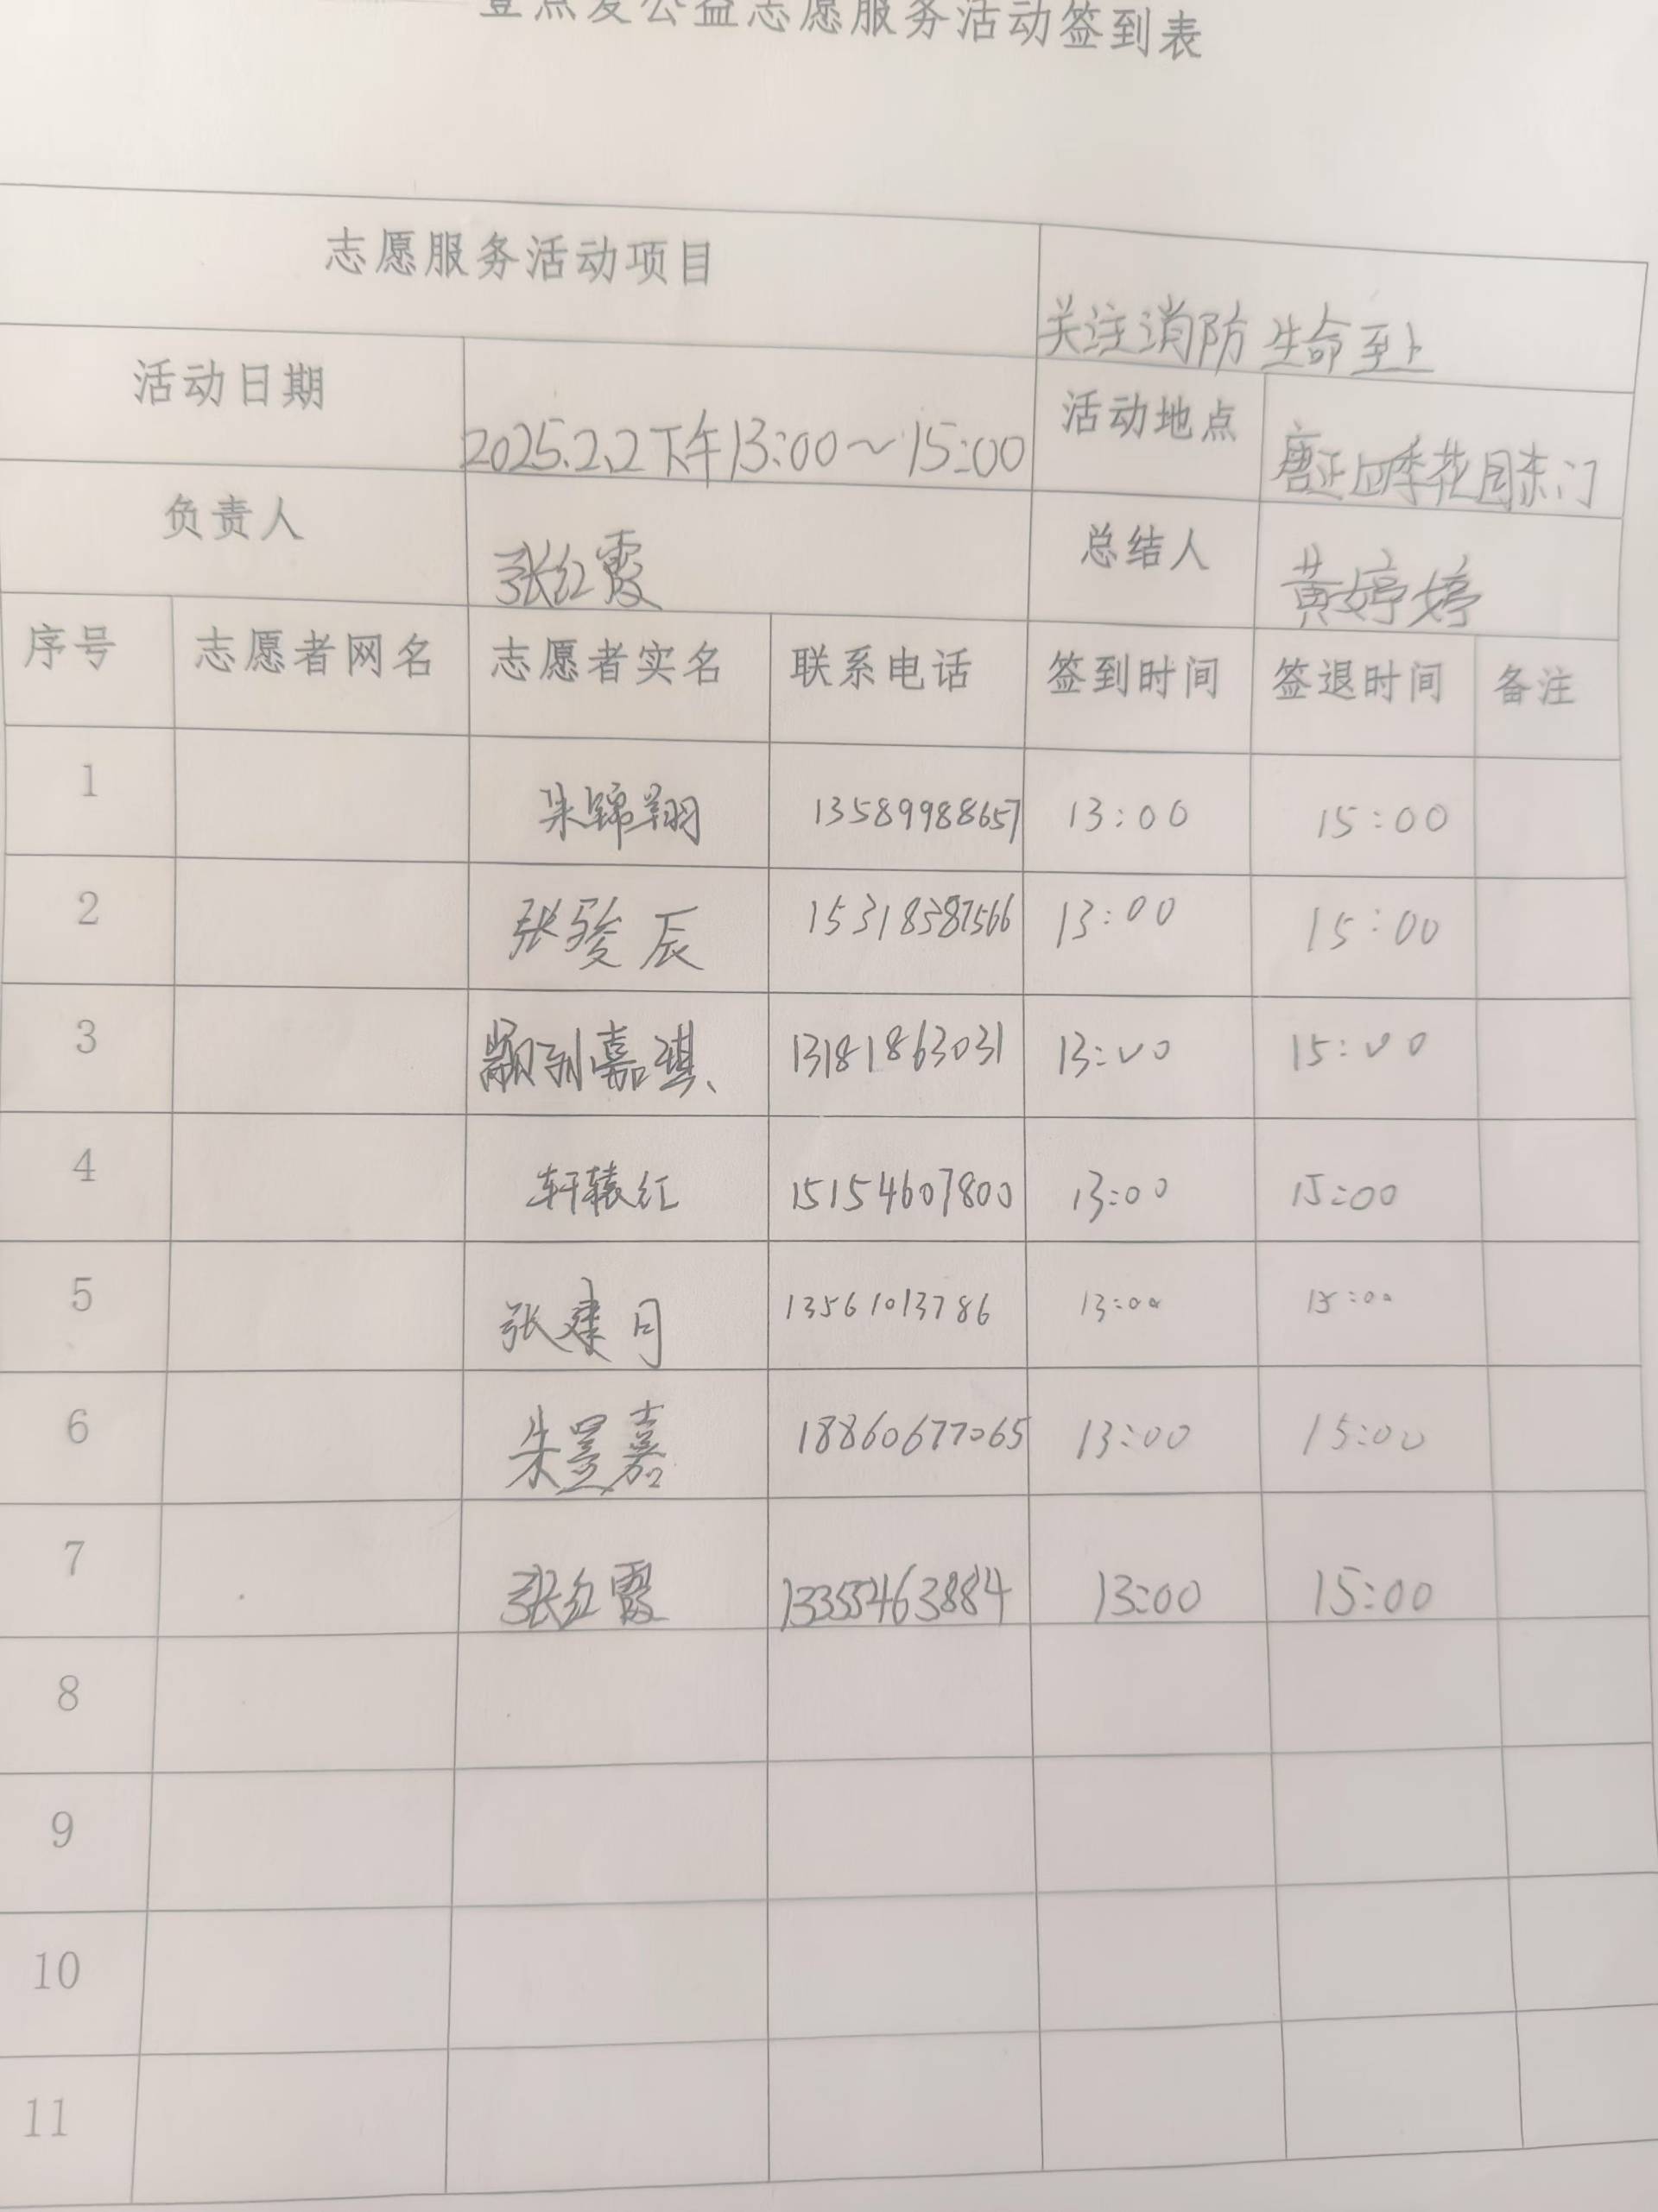 壹点爱公益志愿服务活动签到表
志愿服务活动项目 关注消防 生命至上
活动日期 2025.2.2下午13:00~15:00 活动地点 唐正四季花园东门
负责人 张红霞 总结人 黄婷婷
序号 志愿者网名 志愿者实名 联系电话 签到时间 签退时间 备注
1 朱锦翔 13589988657 13:00 15:00
2 张骏辰 15318387566 13:00 15:00
3 颛孙嘉琪 13181863031 13:00 15:00
4 轩辕红 15154607800 13:00 15:00
5 张建月 13561013786 13:00 15:00
6 朱昱嘉 18860677065 13:00 15:00
7 张红霞 13355463884 13:00 15:00
8
9
10
11